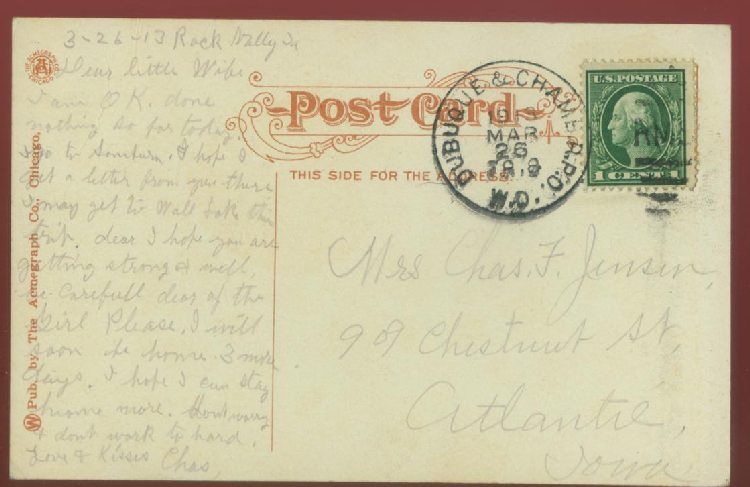 3-26-13 Rock Vally Ia
Dear little Wife
I am O K. done
nothing so far today
I go to I hope I
get a letter from you there
I may get to Wall Lake this
trip. dear I hope you are
getting strong & well,
be Carefull dear of the
Girl Please. I will
soon be home 3 more
days. I hope I can stay
home more. Dont worry
& dont work to hard.
Love & Kisses Chas,
Pub. by The Acmegraph Co., Chicago.
Post Card
THIS SIDE FOR THE ADDRESS
DUBUQUE & CHAMB. R.P.O.
MAR
26
W.D.
U.S. POSTAGE
1 CENT 1
Mrs Chas. F. Jensen,
909 Chestnut St,
Atlantic,
Iowa